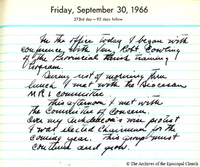 Friday, September 30, 1966
273rd day - 92 days follow
In the office today I began with
conference with Van, Robt. Cowling
of the Provincial Church Training
Program.
During rest of morning then
lunch I met with the Diocesan
M R I committee.
This afternoon I met with
the Committee of Concern.
Over my candidacy's own protest
I was elected Chairman for the
coming year. This group must
continue and grow.
© The Archives of the Episcopal Church